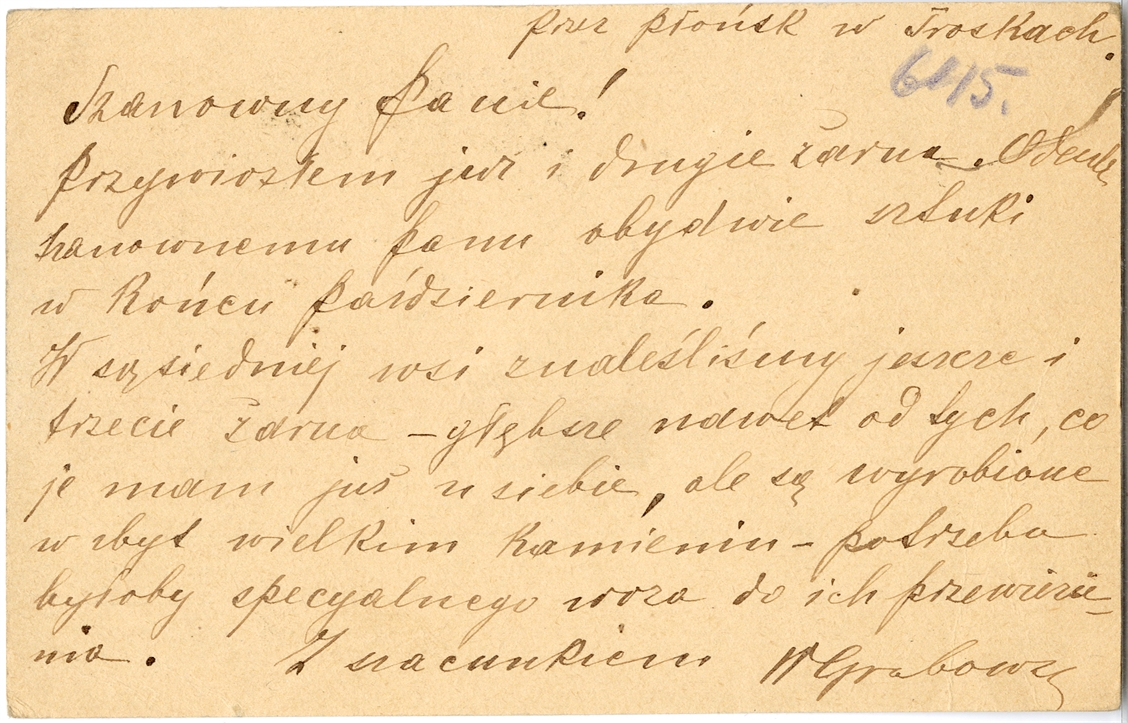 przez Płońsk w Troskach.
6415.
Szanowny Panie!
Przywiozłem już i drugie żarna. Odeszlę
szanownemu Panu obydwie sztuki
w końcu października.
W sąsiedniej wsi znaleśliśmy jeszcze i
trzecie żarna – głębsze nawet od tych, co
je mam już u siebie, ale są wyrobione
w zbyt wielkim kamieniu – potrzeba
byłoby specyalnego woza do ich przewiezie-
nia. Z szacunkiem W Grabows